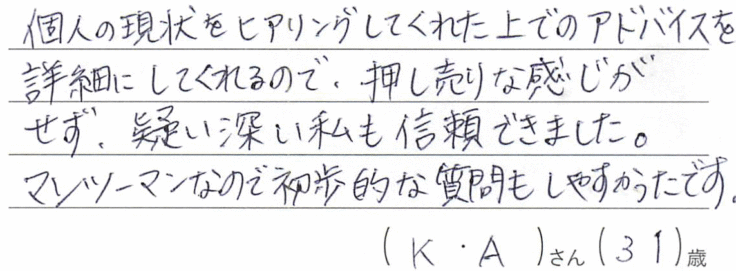 個人の現状をヒアリングしてくれた上でのアドバイスを
詳細にしてくれるので、押し売りな感じが
せず、疑い深い私も信頼できました。
マンツーマンなので初歩的な質問もしやすかったです。
(K・A)さん(31)歳